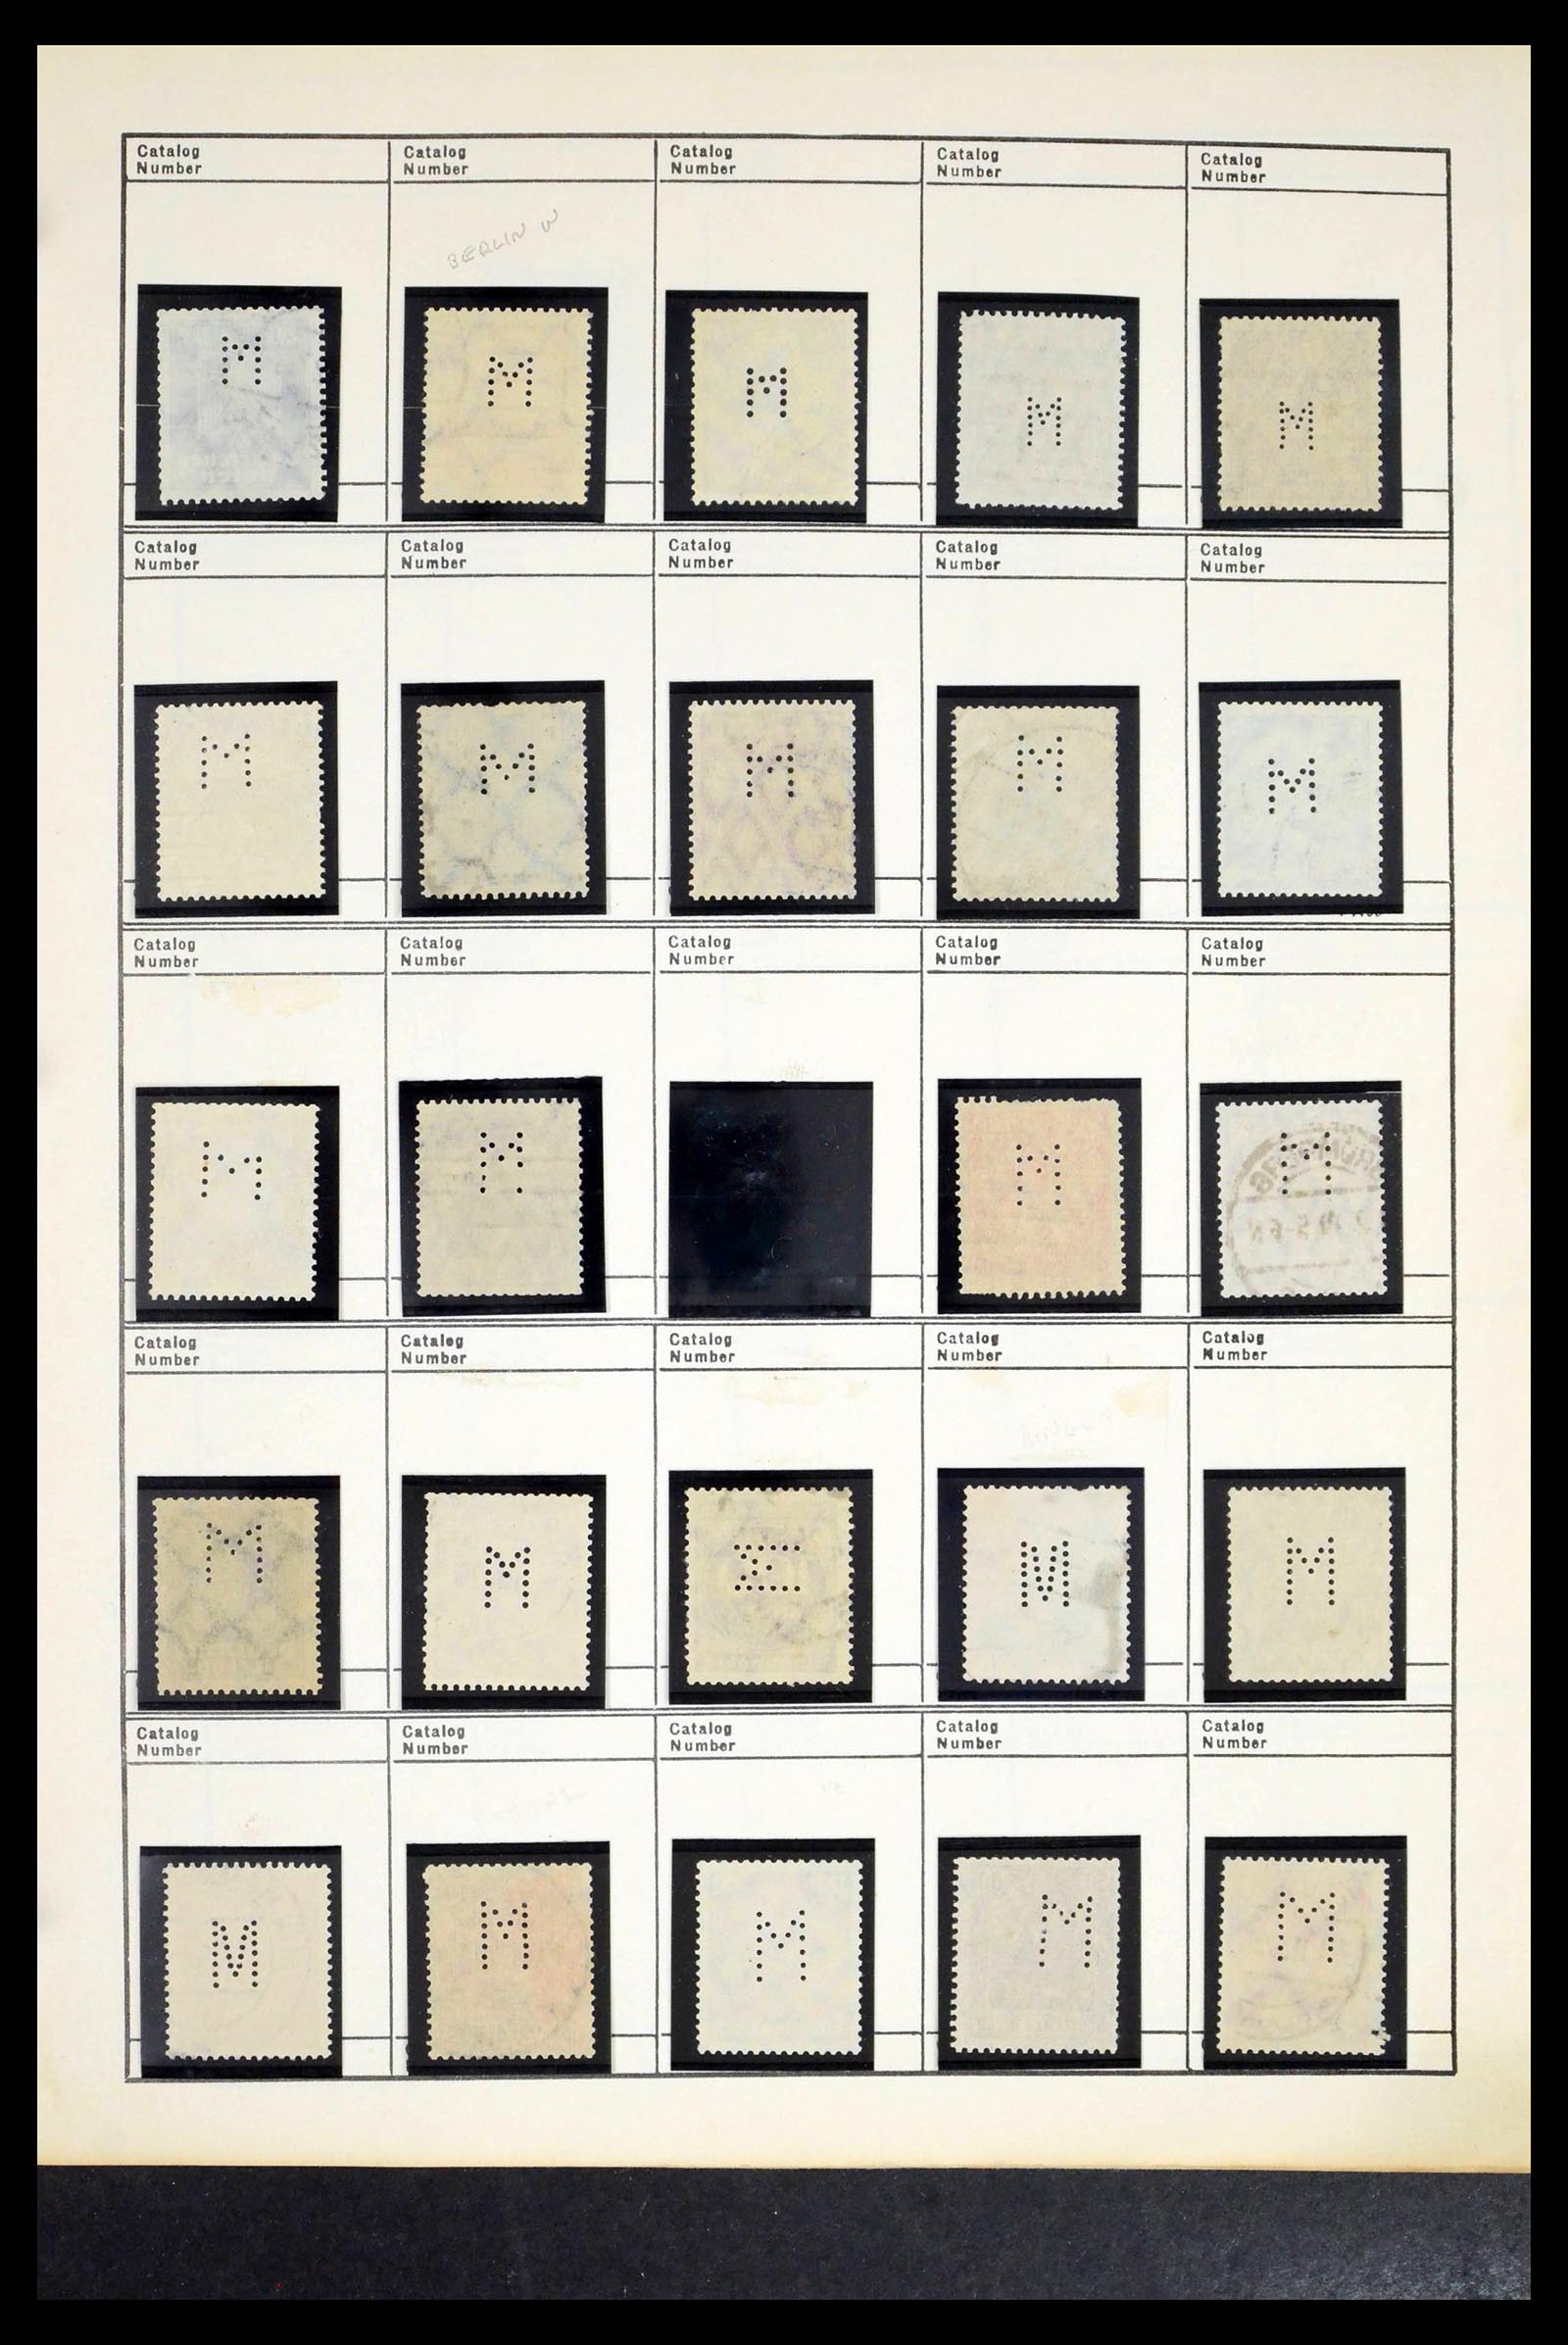 Catalog Number
Catalog Number
Catalog Number
Catalog Number
Catalog Number
BERLIN W
M
M
M
M
M
Catalog Number
Catalog Number
Catalog Number
Catalog Number
Catalog Number
M
M
M
M
M
Catalog Number
Catalog Number
Catalog Number
Catalog Number
Catalog Number
M
M
M
M
Catalog Number
Catalog Number
Catalog Number
Catalog Number
Catalog Number
M
M
M
M
M
Catalog Number
Catalog Number
Catalog Number
Catalog Number
Catalog Number
M
M
M
M
M